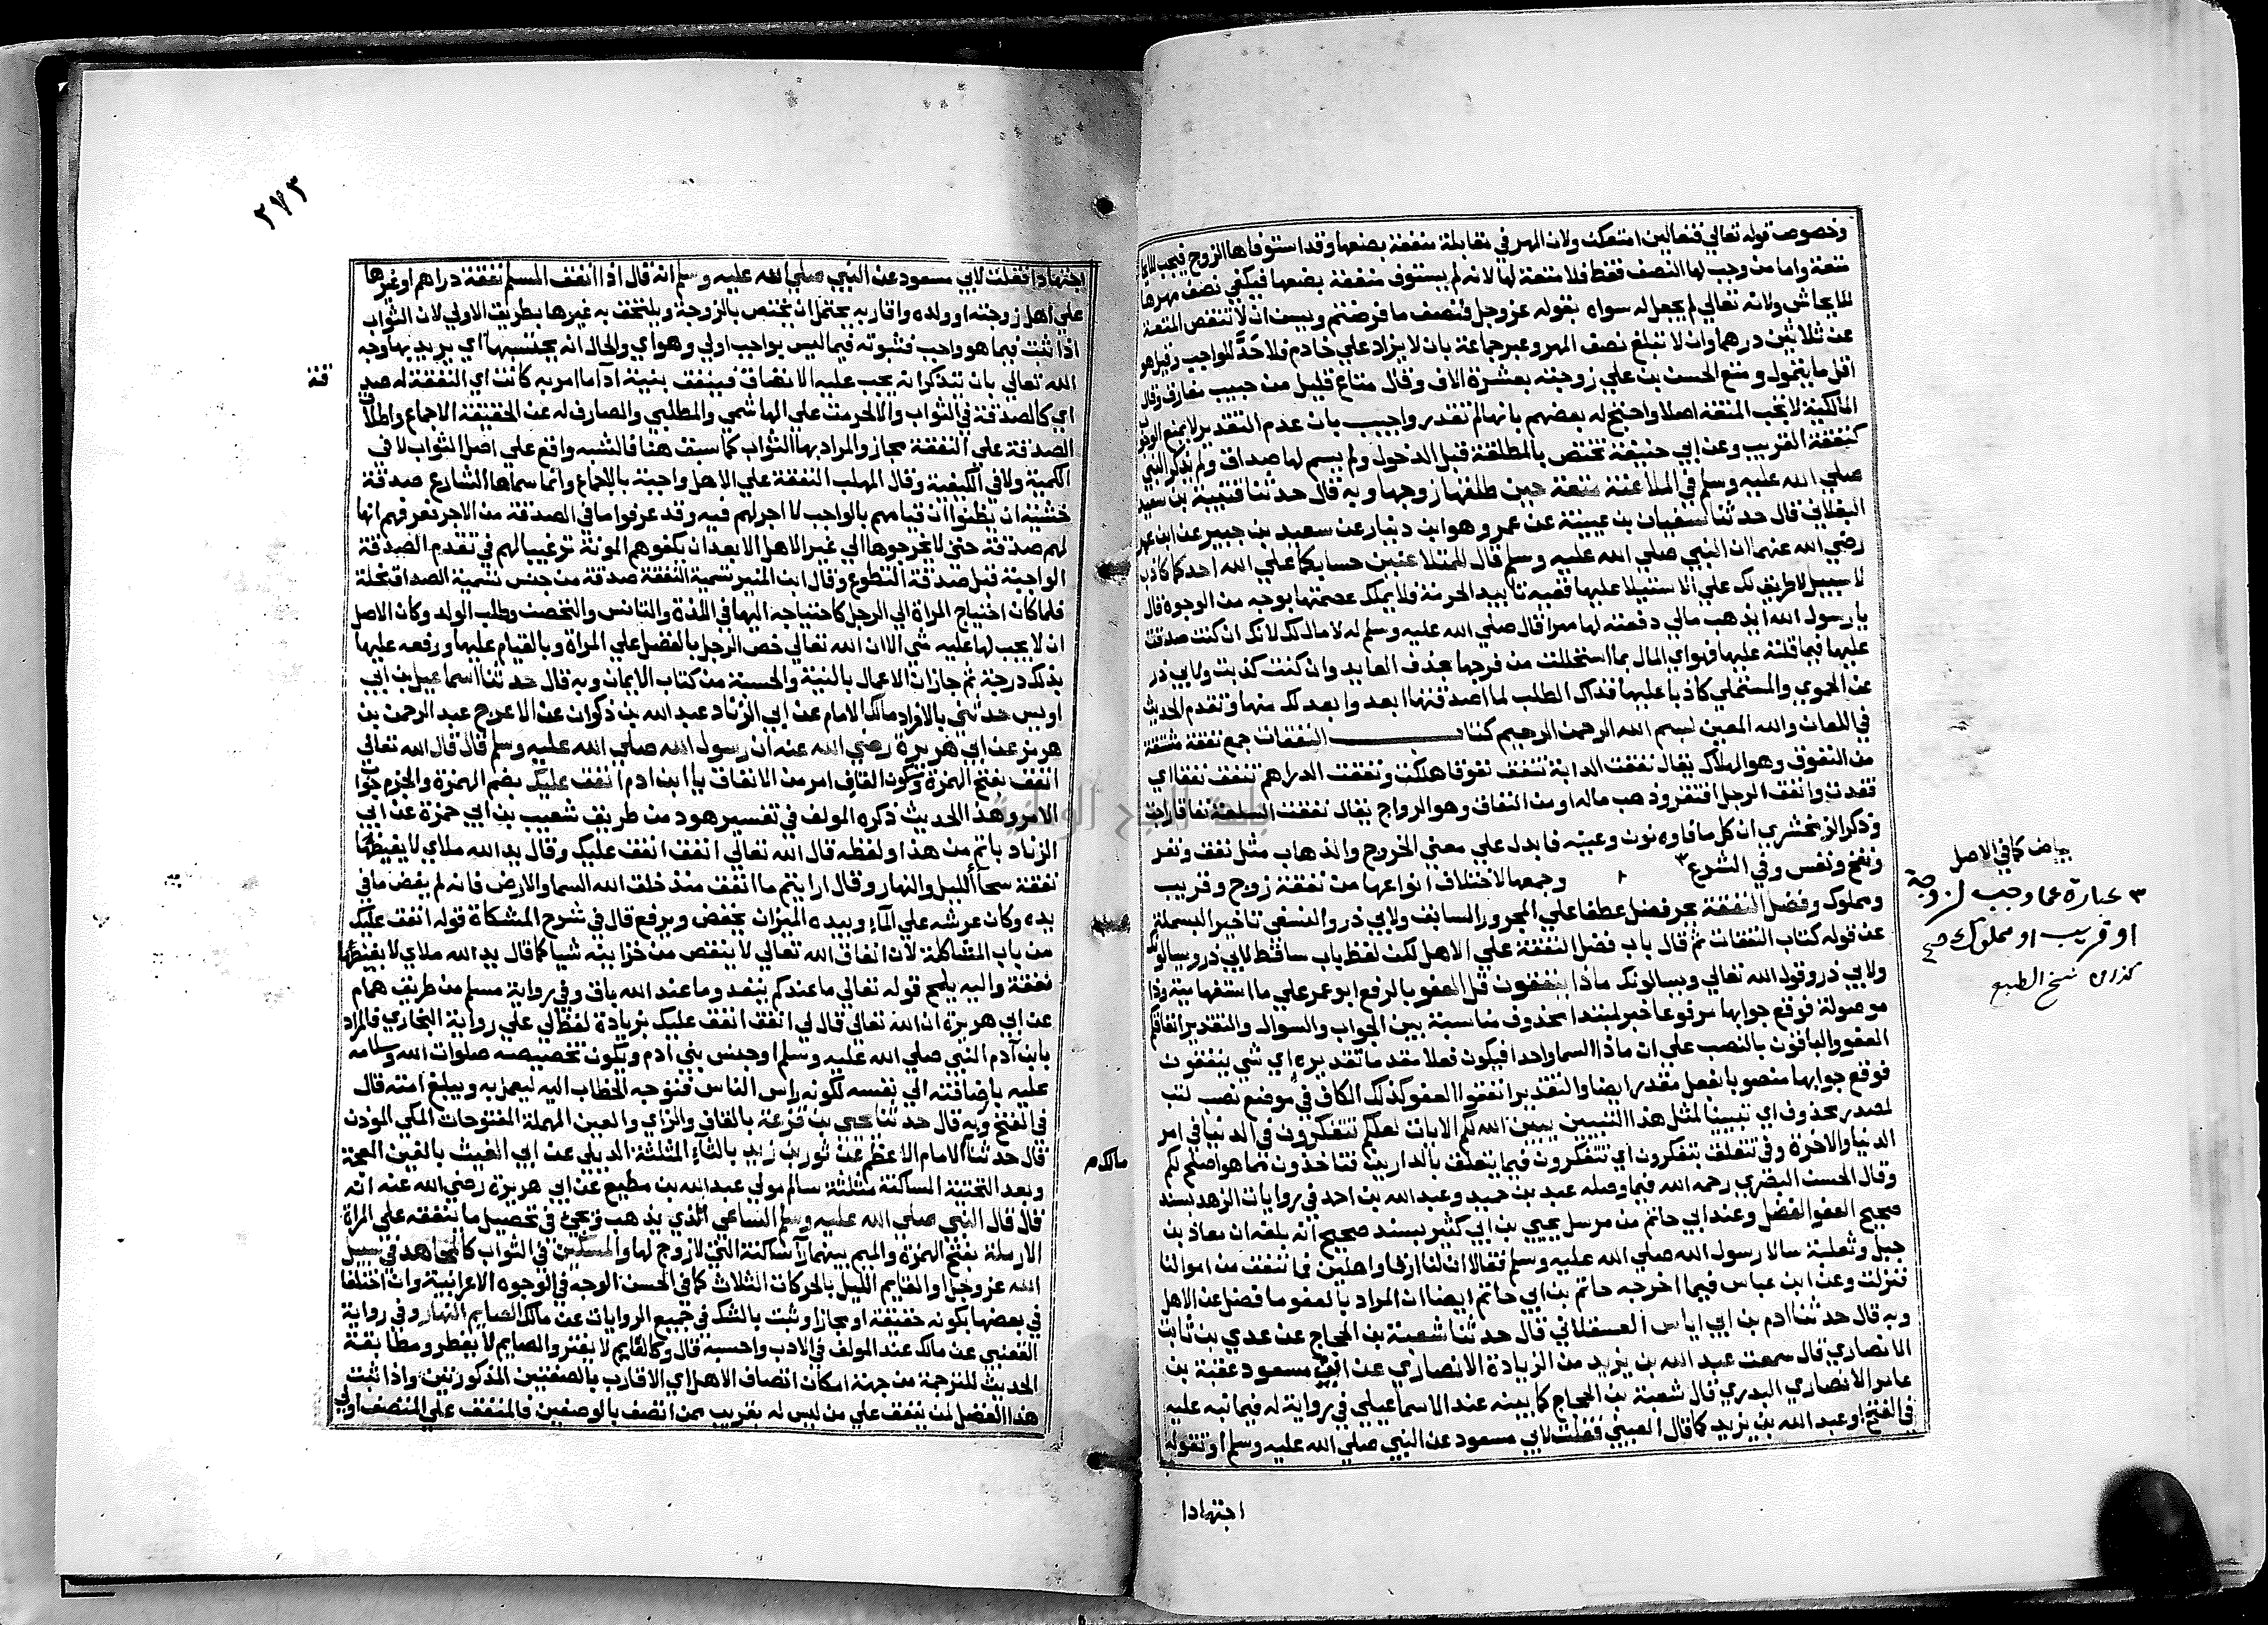 وخصوص قوله تعالي فتعالين امتعكن ولان المهر في مقابلة منفعة بضعها وقد استوفاها الزوج فيجب للايحاش
متعة واما من وجب لها النصف فقط فلا متعة لها لانه لم يستوف منفعة بضعها فيكفي نصف مهرها
للايحاش ولانه تعالي لم يجعل له سواه بقوله عز وجل فنصف ما فرضتم ويسن ان لا تنقص المتعة
عن ثلاثين درهما وان لا تبلغ نصف المهر وعبر جماعة بان لا يزاد علي خادم فلا حد للواجب وقيل هو
اقل ما يتمول ومتع الحسن بن علي زوجته بعشرة الاف وقال متاع قليل من حبيب مفارق وقال
المالكية لا تجب المتعة اصلا واحتج له بعضهم بانها لم تقدر واجيب بان عدم التقدير لا يمنع الوجوب
كنفقة القريب وعن ابي حنيفة تختص بالمطلقة قبل الدخول ولم يسم لها صداق ولم يذكر النبي
صلي الله عليه وسلم في الملاعنة متعة حين طلقها زوجها وبه قال حدثنا قتيبة بن سعيد
البغلاني قال حدثنا سفيان بن عيينة عن عمرو هو ابن دينار عن سعيد بن جبير عن ابن عمر
رضي الله عنهما ان النبي صلي الله عليه وسلم قال للمتلاعنين حسابكما علي الله احدكما كاذب
لا سبيل لا طريق لك علي الاستيلا عليها ففيه تابيد الحرمة فلا يملك عصمتها بوجه من الوجوه قال
يا رسول الله ايذهب مالي دفعته لها مهرا قال صلي الله عليه وسلم له لا مال لك لانك ان كنت صدقت
عليها فيما قلته عليها فهو اي المال بما استحللت من فرجها بحذف العايد وان كنت كذبت ولابي ذر
عن الحموي والمستملي كاذبا عليها فذاك الطلب لما اصدقتها ابعد وابعد لك منها وتقدم الحديث
في اللعان والله المعين بسم الله الرحمن الرحيم كتاب النفقات جمع نفقة مشتقة
من النفوق وهو الهلاك يقال نفقت الدابة تنفق نفوقا هلكت ونفقت الدراهم تنفق نفقا اي
نفدت وانفق الرجل افتقر وذهب ماله او من النفاق وهو الرواج يقال نفقت السلعة نفاقا راجت
وذكر الزمخشري ان كل ما فاوه نون وعينه فا يدل علي معني الخروج والذهاب مثل نفق ونفر
ونفخ ونفس وفي الشرع ٣ وجمعها لاختلاف انواعها من نفقة زوج وقريب
ومملوك وفضل النفقة بجر فضل عطفا علي المجرور السابق ولابي ذر والنسفي تاخير البسملة
عن قوله كتاب النفقات ثم قال باب فضل النفقة علي الاهل لكن لفظ باب ساقط لابي ذر ويسالونك
ولابي ذر وقول الله تعالي ويسالونك ماذا ينفقون قل العفو بالرفع ابو عمر علي ما استفهامية وذا
موصولة فوقع جوابها مرفوعا خبر لمبتدا محذوف مناسبة بين الجواب والسوال والتقدير انفاقكم
العفو والباقون بالنصب علي ان ماذا اسما واحدا فيكون فعلا مقدما تقديره اي شي ينفقون
فوقع جوابها منصوبا بفعل مقدر ايضا والتقدير انفقوا العفو كذلك الكاف في موضع نصب لنت
لمصدر محذوف اي تبيينا لمثل هذا التبيين يبين الله لكم الايات لعلكم تتفكرون في الدنيا في امر
الدنيا والاخرة وفي تتعلق بتفكرون اي تتفكرون فيما يتعلق بالدارين فتاخذون مما هو اصلح لكم
وقال الحسن البصري رحمه الله فيما وصله عبد بن حميد وعبد الله بن احمد في زوايات الزهد بسند
صحيح العفو الفضل وعند ابي حاتم من مرسل يحيي بن ابي كثير بسند صحيح انه بلغه ان معاذ بن
جبل وثعلبة سالا رسول الله صلي الله عليه وسلم فقالا ان لنا ارقا واهلين فما ننفق من اموالنا
فنزلت وعن ابن عباس فيما اخرجه حاتم بن ابي حاتم ايضا ان المراد بالعفو ما فضل عن الاهل
وبه قال حدثنا ادم بن ابي اياس العسقلاني قال حدثنا شعبة بن الحجاج عن عدي بن ثابت
الانصاري قال سمعت عبد الله بن يزيد من الزيادة الانصاري عن ابي مسعود عقبة بن
عامر الانصاري البدري قال شعبة بن الحجاج كما بينه عند الاسماعيلي في رواية له فيما نبه عليه
في الفتح او عبد الله بن يزيد كما قال العيني فقلت لابي مسعود عن النبي صلي الله عليه وسلم او تقوله
اجتهادا
بياض كما في الاصل
٣ عبارة عما وجب لزوجة
او قريب او مملوك صح
كذا في نسخ الطبع
٢٧٣
اجتهادا فقلت لابي مسعود عن النبي صلي الله عليه وسلم انه قال اذا انفق المسلم نفقة دراهم او غيرها
علي اهل زوجته او ولده واقاربه يحتمل ان يختص بالزوجة ويلتحق به غيرها بطريق الاولي لان الثواب
اذا ثبت فيما هو واجب فثبوته فيما ليس بواجب اولي وهو اي والحال انه يحتسبها اي يريد بها وجه
الله تعالي بان يتذكر انه يجب عليه الانفاق فينفق بنية ادا ما امر به كانت اي النفقة له صد
قة
اي كالصدقة في الثواب والا لحرمت علي الهاشمي والمطلبي والصارف له عن الحقيقة الاجماع واطلاق
الصدقة علي النفقة مجاز والمراد بها الثواب كما سبق هنا فالتشبيه واقع علي اصل الثواب لا في
الكمية ولا في الكيفية وقال المهلب النفقة علي الاهل واجبة بالاجماع وانما سماها الشارع صدقة
خشية ان يظنوا ان قيامهم بالواجب لا اجر لهم فيه وقد عرفوا ما في الصدقة من الاجر فعرفهم انها
لهم صدقة حتي لا يخرجوها الي غير الاهل الا بعد ان يكفوهم المونة ترغيبا لهم في تقدم الصدقة
الواجبة قبل صدقة التطوع وقال ابن المنير تسمية النفقة صدقة من جنس تسمية الصداق نحلة
فلما كان احتياج المراة الي الرجل كاحتياجه اليها في اللذة والتانس والتحصن وطلب الولد وكان الاصل
ان لا يجب لها عليه شي الا ان الله تعالي خص الرجل بالفضل علي المراة وبالقيام عليها ورفعه عليها
بذلك درجة ثم جاز ان الاعمال بالنية والحسبة من كتاب الايمان وبه قال حدثنا اسماعيل بن ابي
اويس حدثني بالافراد مالك الامام عن ابي الزناد عبد الله بن ذكوان عن الاعرج عبد الرحمن بن
هرمز عن ابي هريرة رضي الله عنه ان رسول الله صلي الله عليه وسلم قال قال الله تعالي
انفق بفتح الهمزة وسكون القاف امر من الانفاق يا ابن ادم انفق عليك بضم الهمزة والجزم جواب
الامر وهذا الحديث ذكره المولف في تفسير هود من طريق شعيب بن ابي حمزة عن ابي
الزناد باتم من هذا ولفظه قال الله تعالي انفق انفق عليك وقال يد الله ملاي لا يغيضها
نفقة سحا الليل والنهار وقال ارايتم ما انفق منذ خلق الله السما والارض فانه لم يغض ما في
يده وكان عرشه علي الماء وبيده الميزان يخفض ويرفع قال في شرح المشكاة قوله انفق عليك
من باب المشاكلة لان انفاق الله تعالي لا ينقص من خزاينه شيا كما قال يد الله ملاي لا يغيضها
نفقة واليه يلمح قوله تعالي ما عندكم ينفد وما عند الله باق وفي رواية مسلم من طريق همام
عن ابي هريرة ان الله تعالي قال لي انفق انفق عليك بزيادة لفظ لي علي رواية البخاري فالمراد
بابن آدم النبي صلي الله عليه وسلم او جنس بني ادم ويكون تخصيصه صلوات الله وسلامه
عليه باضافته الي نفسه لكونه راس الناس فتوجه الخطاب اليه ليعمل به ويبلغ امته قال
في الفتح وبه قال حدثنا يحيي بن قزعة بالقاف والزاي والعين المهملة المفتوحات المكي الموذن
قال حدثنا الامام الاعظم عن ثور بن زيد بالثاء المثلثة الديلي عن ابي الغيث بالغين المعجمة
مالك م
وبعد التحتية الساكنة مثلثة سالم مولي عبد الله بن مطيع عن ابي هريرة رضي الله عنه انه
قال قال النبي صلي الله عليه وسلم الساعي الذي يذهب ويجي في تحصيل ما ينفقه علي المراة
الارملة بفتح الهمزة والميم بينهما را ساكنة التي لا زوج لها والمسكين في الثواب كالمجاهد في سبيل
الله عز وجل او القايم الليل بالحركات الثلاث كما في الحسن الوجه في الوجوه الاعرابية وان اختلفا
في بعضها بكونه حقيقة او مجازا وثبت بالشك في جميع الروايات عن مالك الصايم النهار وفي رواية
القعنبي عن مالك عند المولف في الادب واحسبه قال وكالقايم لا يفتر والصايم لا يفطر ومطابقة
الحديث للترجمة من جهة امكان اتصاف الاهل اي الاقارب بالصفتين المذكورتين واذا ثبت
هذا الفضل لمن ينفق علي من ليس له بقريب ممن اتصف بالوصفين فالمنفق علي المتصف اولي